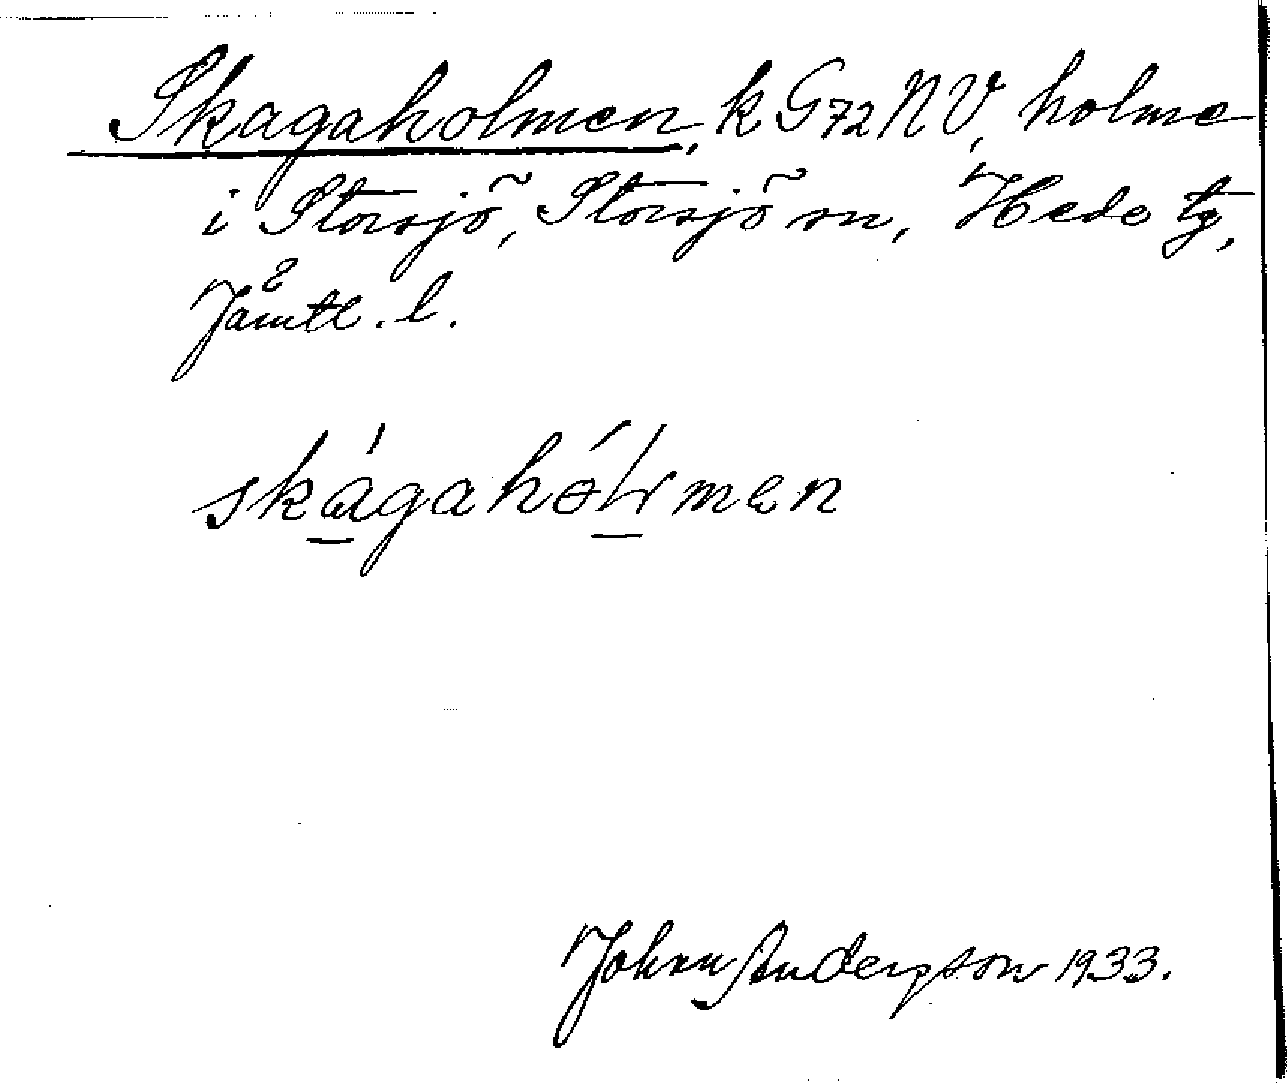 Skagaholmen, k G72NV, holme
i Storsjö, Storsjö sn, Hede tg,
Jämtl. l.
skágahólmen
Johan Andersson 1933.